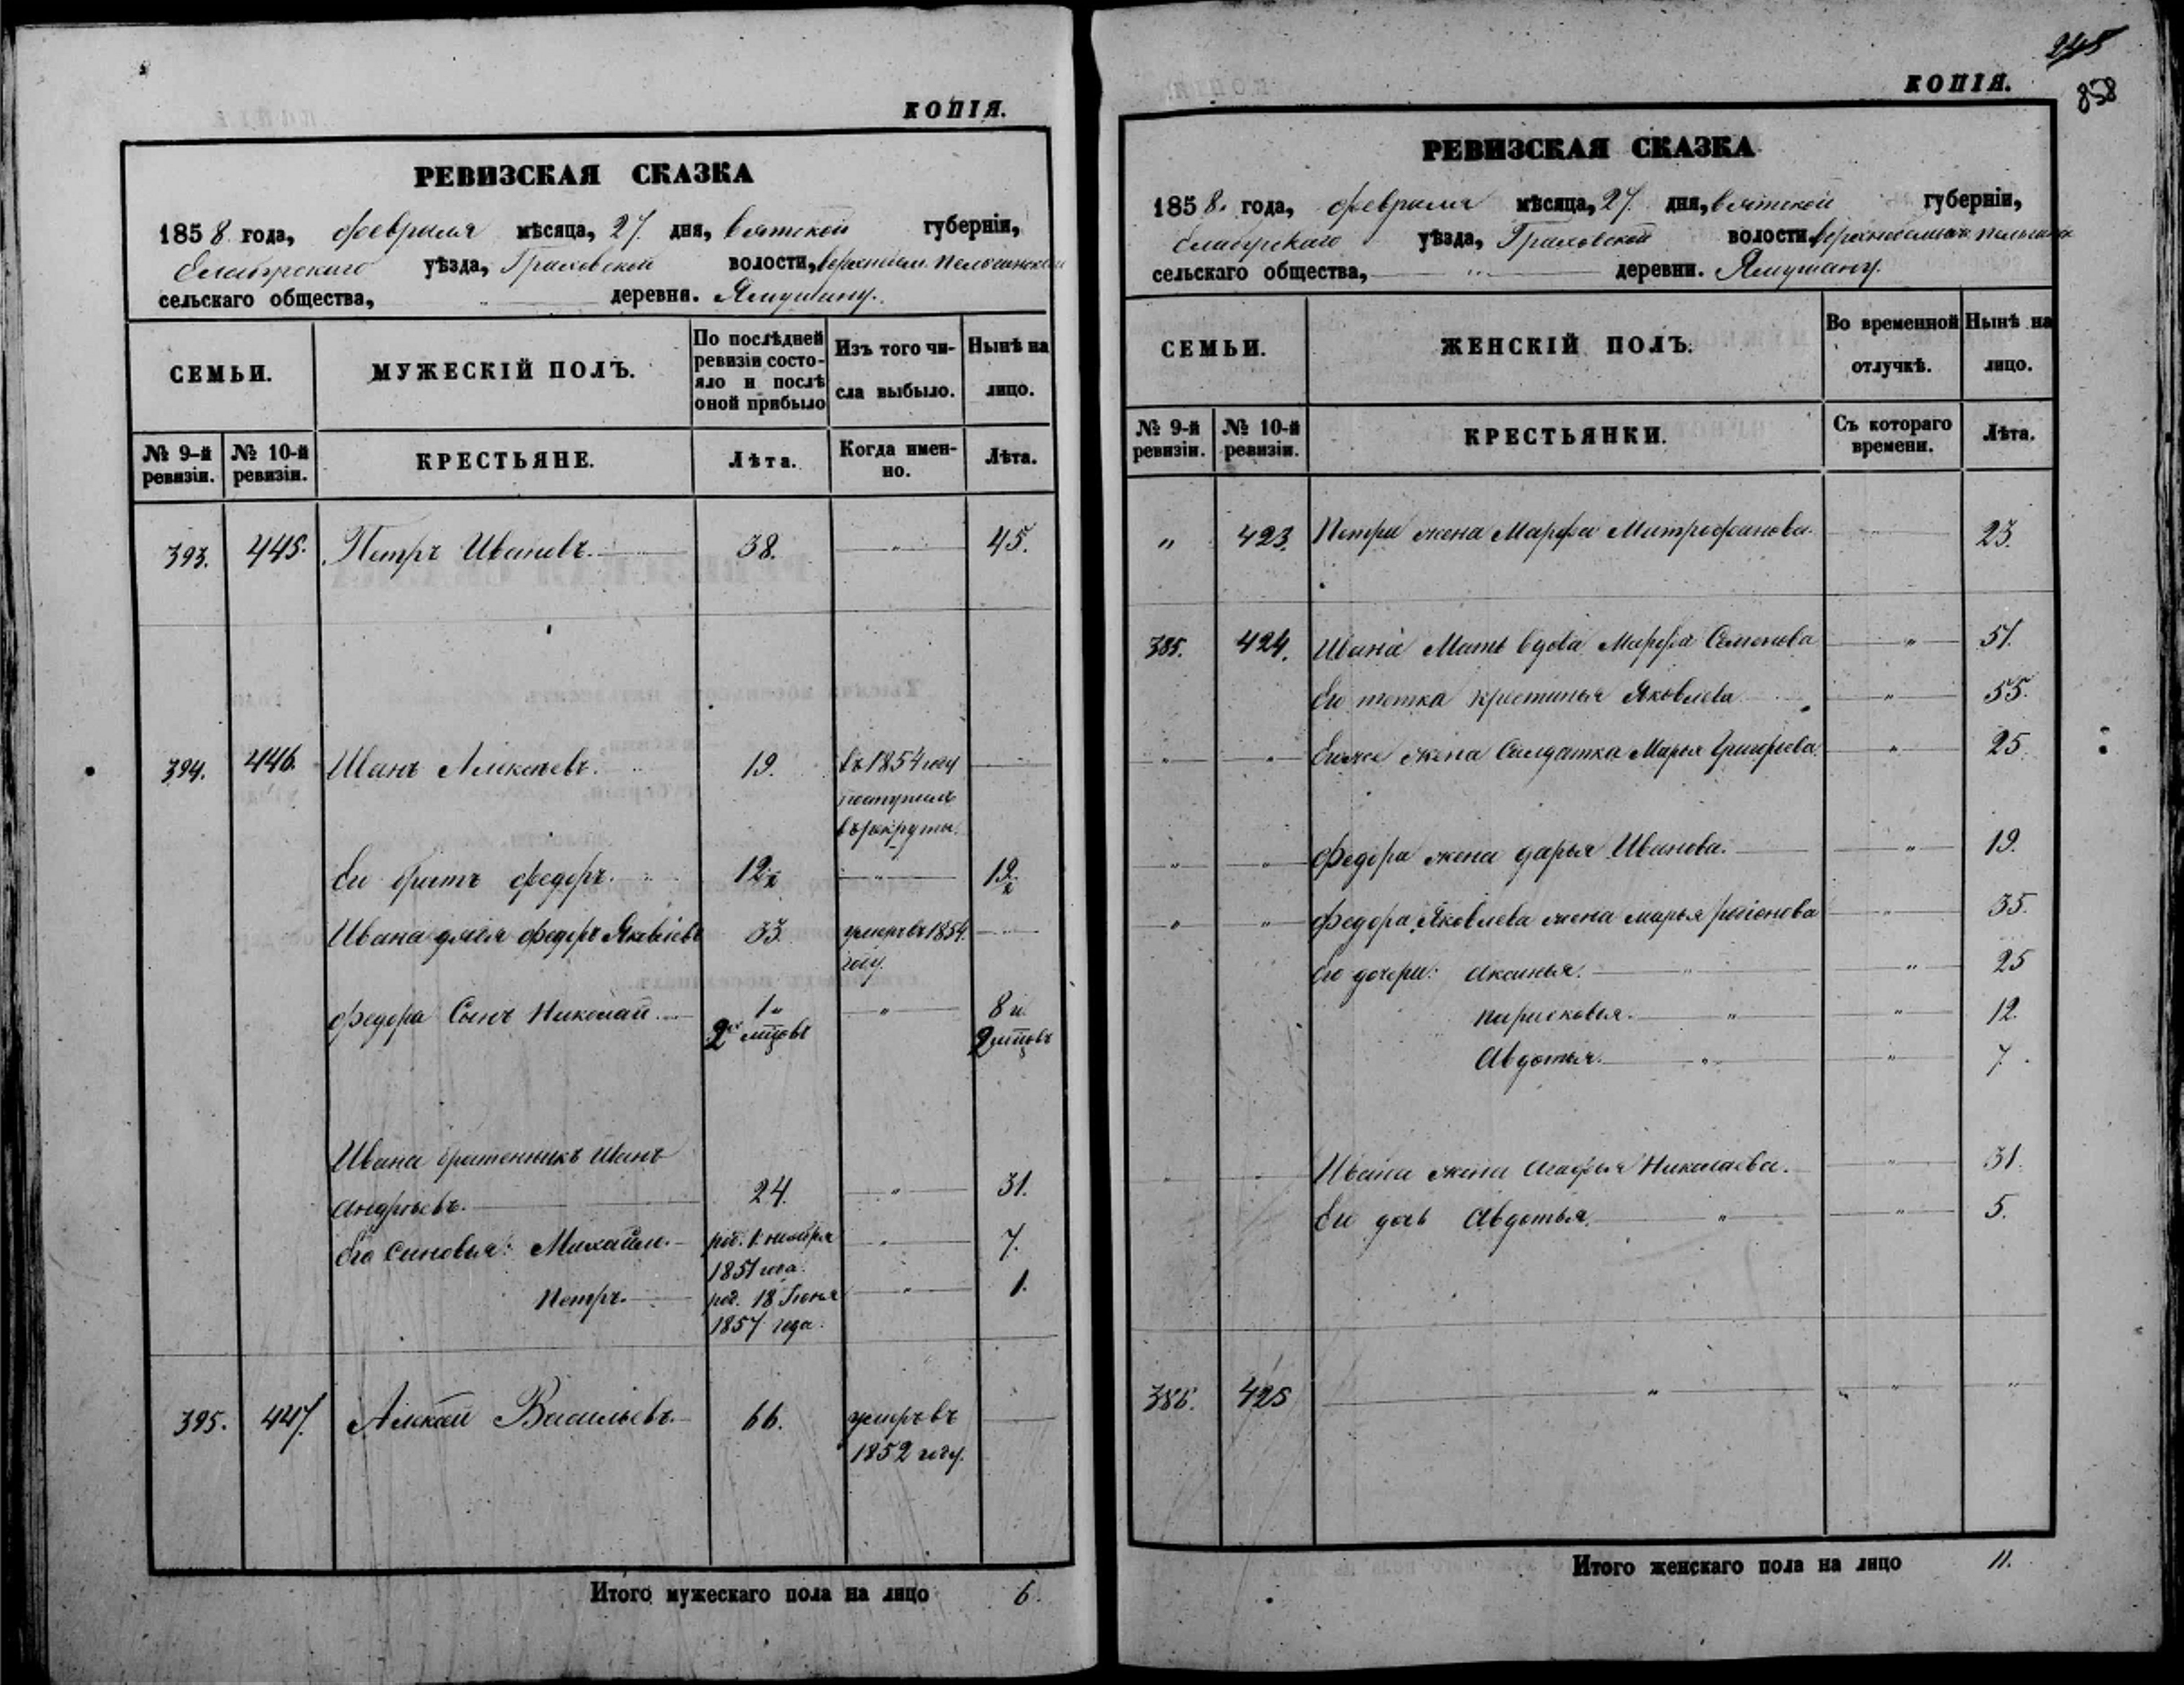 КОПІЯ.
РЕВИЗСКАЯ СКАЗКА
1858 года, февраля мѣсяца, 27 дня, вятской губерніи,
Елабугскаго уѣзда, Граховской волости,
сельскаго общества, " деревня. Ямушану.
СЕМЬИ.
МУЖЕСКІЙ ПОЛЪ.
По послѣдней
ревизіи состо-
яло и послѣ
оной прибыло
Изъ того чи-
сла выбыло.
Нынѣ на
лицо.
№ 9-й
ревизіи.
№ 10-й
ревизіи.
КРЕСТЬЯНЕ.
Лѣта.
Когда имен-
но.
Лѣта.
393. 445. Петръ Ивановъ. 38. " 45.
394. 446. Иванъ Алексѣевъ. 19. въ 1854 году
поступилъ
въ рекруты.
Его братъ федоръ. 12½ " 19½
Ивана дядя федоръ Яковлевъ 33 умеръ въ 1854
году.
федора Сынъ Николай 1 " 8 и
2 мцовъ 2 мцовъ
Ивана братенникъ Иванъ
Андреевъ. 24. " 31.
Его Сыновья: Михайла. род. 1. ноября " 7.
1851 года.
Петръ. род. 18 Іюня " 1.
1857 года.
395. 447. Алексѣй Васильевъ. 66. умеръ въ
1852 году.
Итого мужескаго пола на лицо 6.
245
858
КОПІЯ.
РЕВИЗСКАЯ СКАЗКА
1858. года, февраля мѣсяца, 27. дня, вятской губерніи,
Елабугскаго уѣзда, Граховской волости
сельскаго общества, " деревни. Ямушану.
СЕМЬИ.
ЖЕНСКІЙ ПОЛЪ.
Во временной
отлучкѣ.
Нынѣ на
лицо.
№ 9-й
ревизіи.
№ 10-й
ревизіи.
КРЕСТЬЯНКИ.
Съ котораго
времени.
Лѣта.
" 423. Петра жена Марфа Митрофанова. 23.
385. 424. Ивана Мать вдова Марфа Семенова " 51.
Его тетка крестинья Яковлева " 55.
" " Его же жена Салдатка Марья Григорьева. " 25
" " федора жена дарья Иванова. " 19.
" " федора Яковлева жена марья " 35.
Его дочери: Аксинья. " " 25
парасковья. " " 12.
Авдотья. " " 7.
" " Ивана жена агафья Николаева. " 31.
Его дочь Авдотья. " " 5.
386. 425 " " "
Итого женскаго пола на лицо 11.